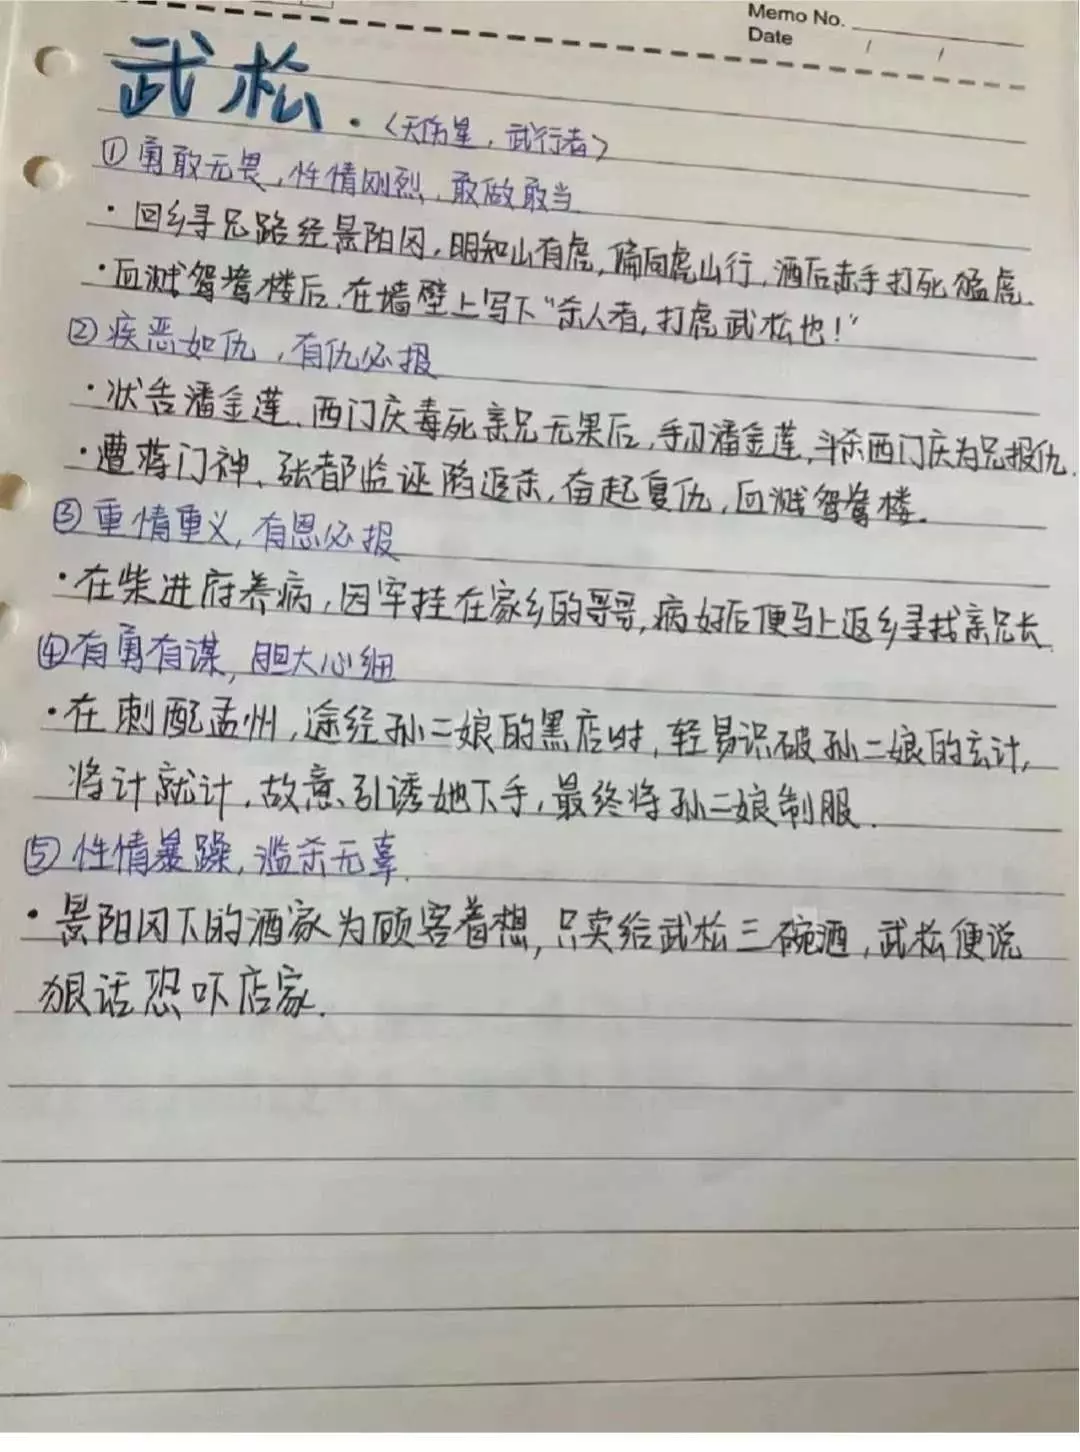 Memo No.
Date / /
武松.〈天伤星，武行者〉
①勇敢无畏，性情刚烈，敢做敢当
·回乡寻兄路经景阳冈，明知山有虎，偏向虎山行，酒后赤手打死猛虎.
·血溅鸳鸯楼后，在墙壁上写下“杀人者，打虎武松也！”
②疾恶如仇，有仇必报
·状告潘金莲、西门庆毒死亲兄无果后，手刃潘金莲，斗杀西门庆为兄报仇.
·遭蒋门神、张都监诬陷追杀，奋起复仇，血溅鸳鸯楼.
③重情重义，有恩必报
·在柴进府养病，因牢挂在家乡的哥哥，病好后便马上返乡寻找亲兄长
④有勇有谋，胆大心细
·在刺配孟州，途经孙二娘的黑店时，轻易识破孙二娘的玄计，
将计就计，故意引诱她下手，最终将孙二娘制服.
⑤性情暴躁，滥杀无辜.
·景阳冈下的酒家为顾客着想，只卖给武松三碗酒，武松便说
狠话恐吓店家.